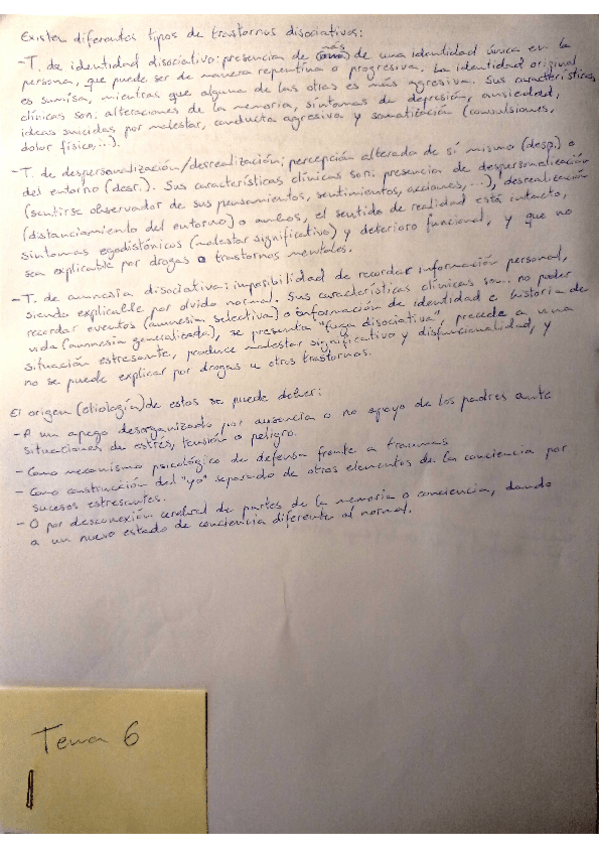 Existen diferentes tipos de trastornos disociativos:
-T. de identidad disociativo: presencia de más de una identidad única en la
persona, que puede ser de manera repentina o progresiva. La identidad original
es sumisa, mientras que alguna de las otras es más agresiva. Sus características
clínicas son: alteraciones de la memoria, síntomas de depresión, ansiedad,
ideas suicidas por malestar, conducta agresiva y somatización (convulsiones,
dolor físico,...).
-T. de despersonalización/desrealización: percepción alterada de sí mismo (desp.) o
del entorno (desr.). Sus características clínicas son: presencia de despersonalización
(sentirse observador de sus pensamientos, sentimientos, acciones,...), desrealización
(distanciamiento del entorno) o ambos, el sentido de realidad está intacto,
síntomas egodistónicos (malestar significativo) y deterioro funcional, y que no
sea explicable por drogas o trastornos mentales.
-T. de amnesia disociativa: imposibilidad de recordar información personal,
siendo explicable por olvido normal. Sus características clínicas son: no poder
recordar eventos (amnesia selectiva) o información de identidad e historia de
vida (amnesia generalizada), se presenta "fuga disociativa", precede a una
situación estresante, produce malestar significativo y disfuncionalidad, y
no se puede explicar por drogas u otros trastornos.
El origen (etiología) de estos se puede deber:
-A un apego desorganizado por ausencia o no apoyo de los padres ante
situaciones de estrés, tensión o peligro.
- Como mecanismo psicológico de defensa frente a traumas
- Como construcción del "yo" separado de otros elementos de la conciencia por
sucesos estresantes.
- O por desconexión cerebral de partes de la memoria o conciencia, dando
a un nuevo estado de conciencia diferente al normal.
Tema 6